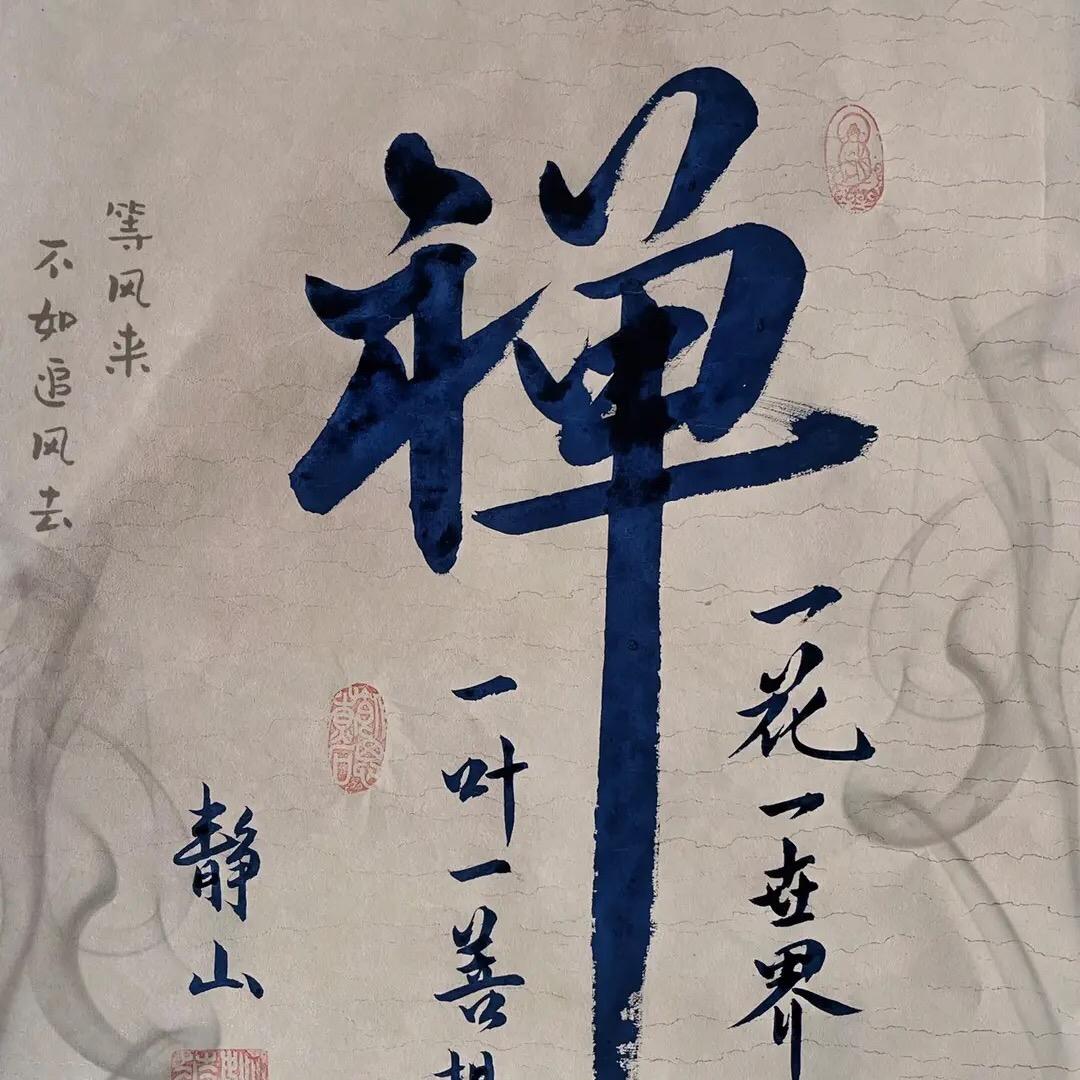 禅
一花一世界
一叶一善
静山
等风来
不如追风去